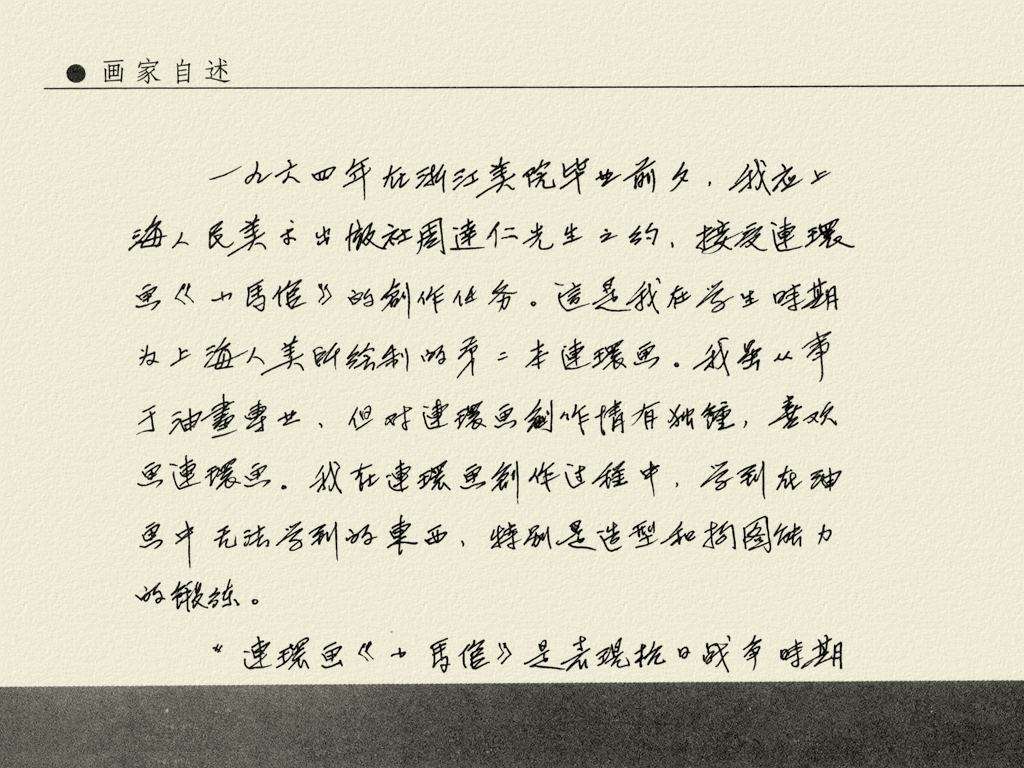 ● 画家自述
一九六四年在浙江美院毕业前夕，我应上
海人民美术出版社周達仁先生之约，接受連環
画《小馬倌》的創作任务。這是我在学生時期
为上海人美所绘制的第二本連環画。我虽从事
于油畫專业，但对連環画創作情有独鍾，喜欢
画連環画。我在連環画創作过程中，学到在油
画中无法学到的東西，特别是造型和构图能力
的鍛练。
“連環画《小馬倌》是表現抗日战争時期